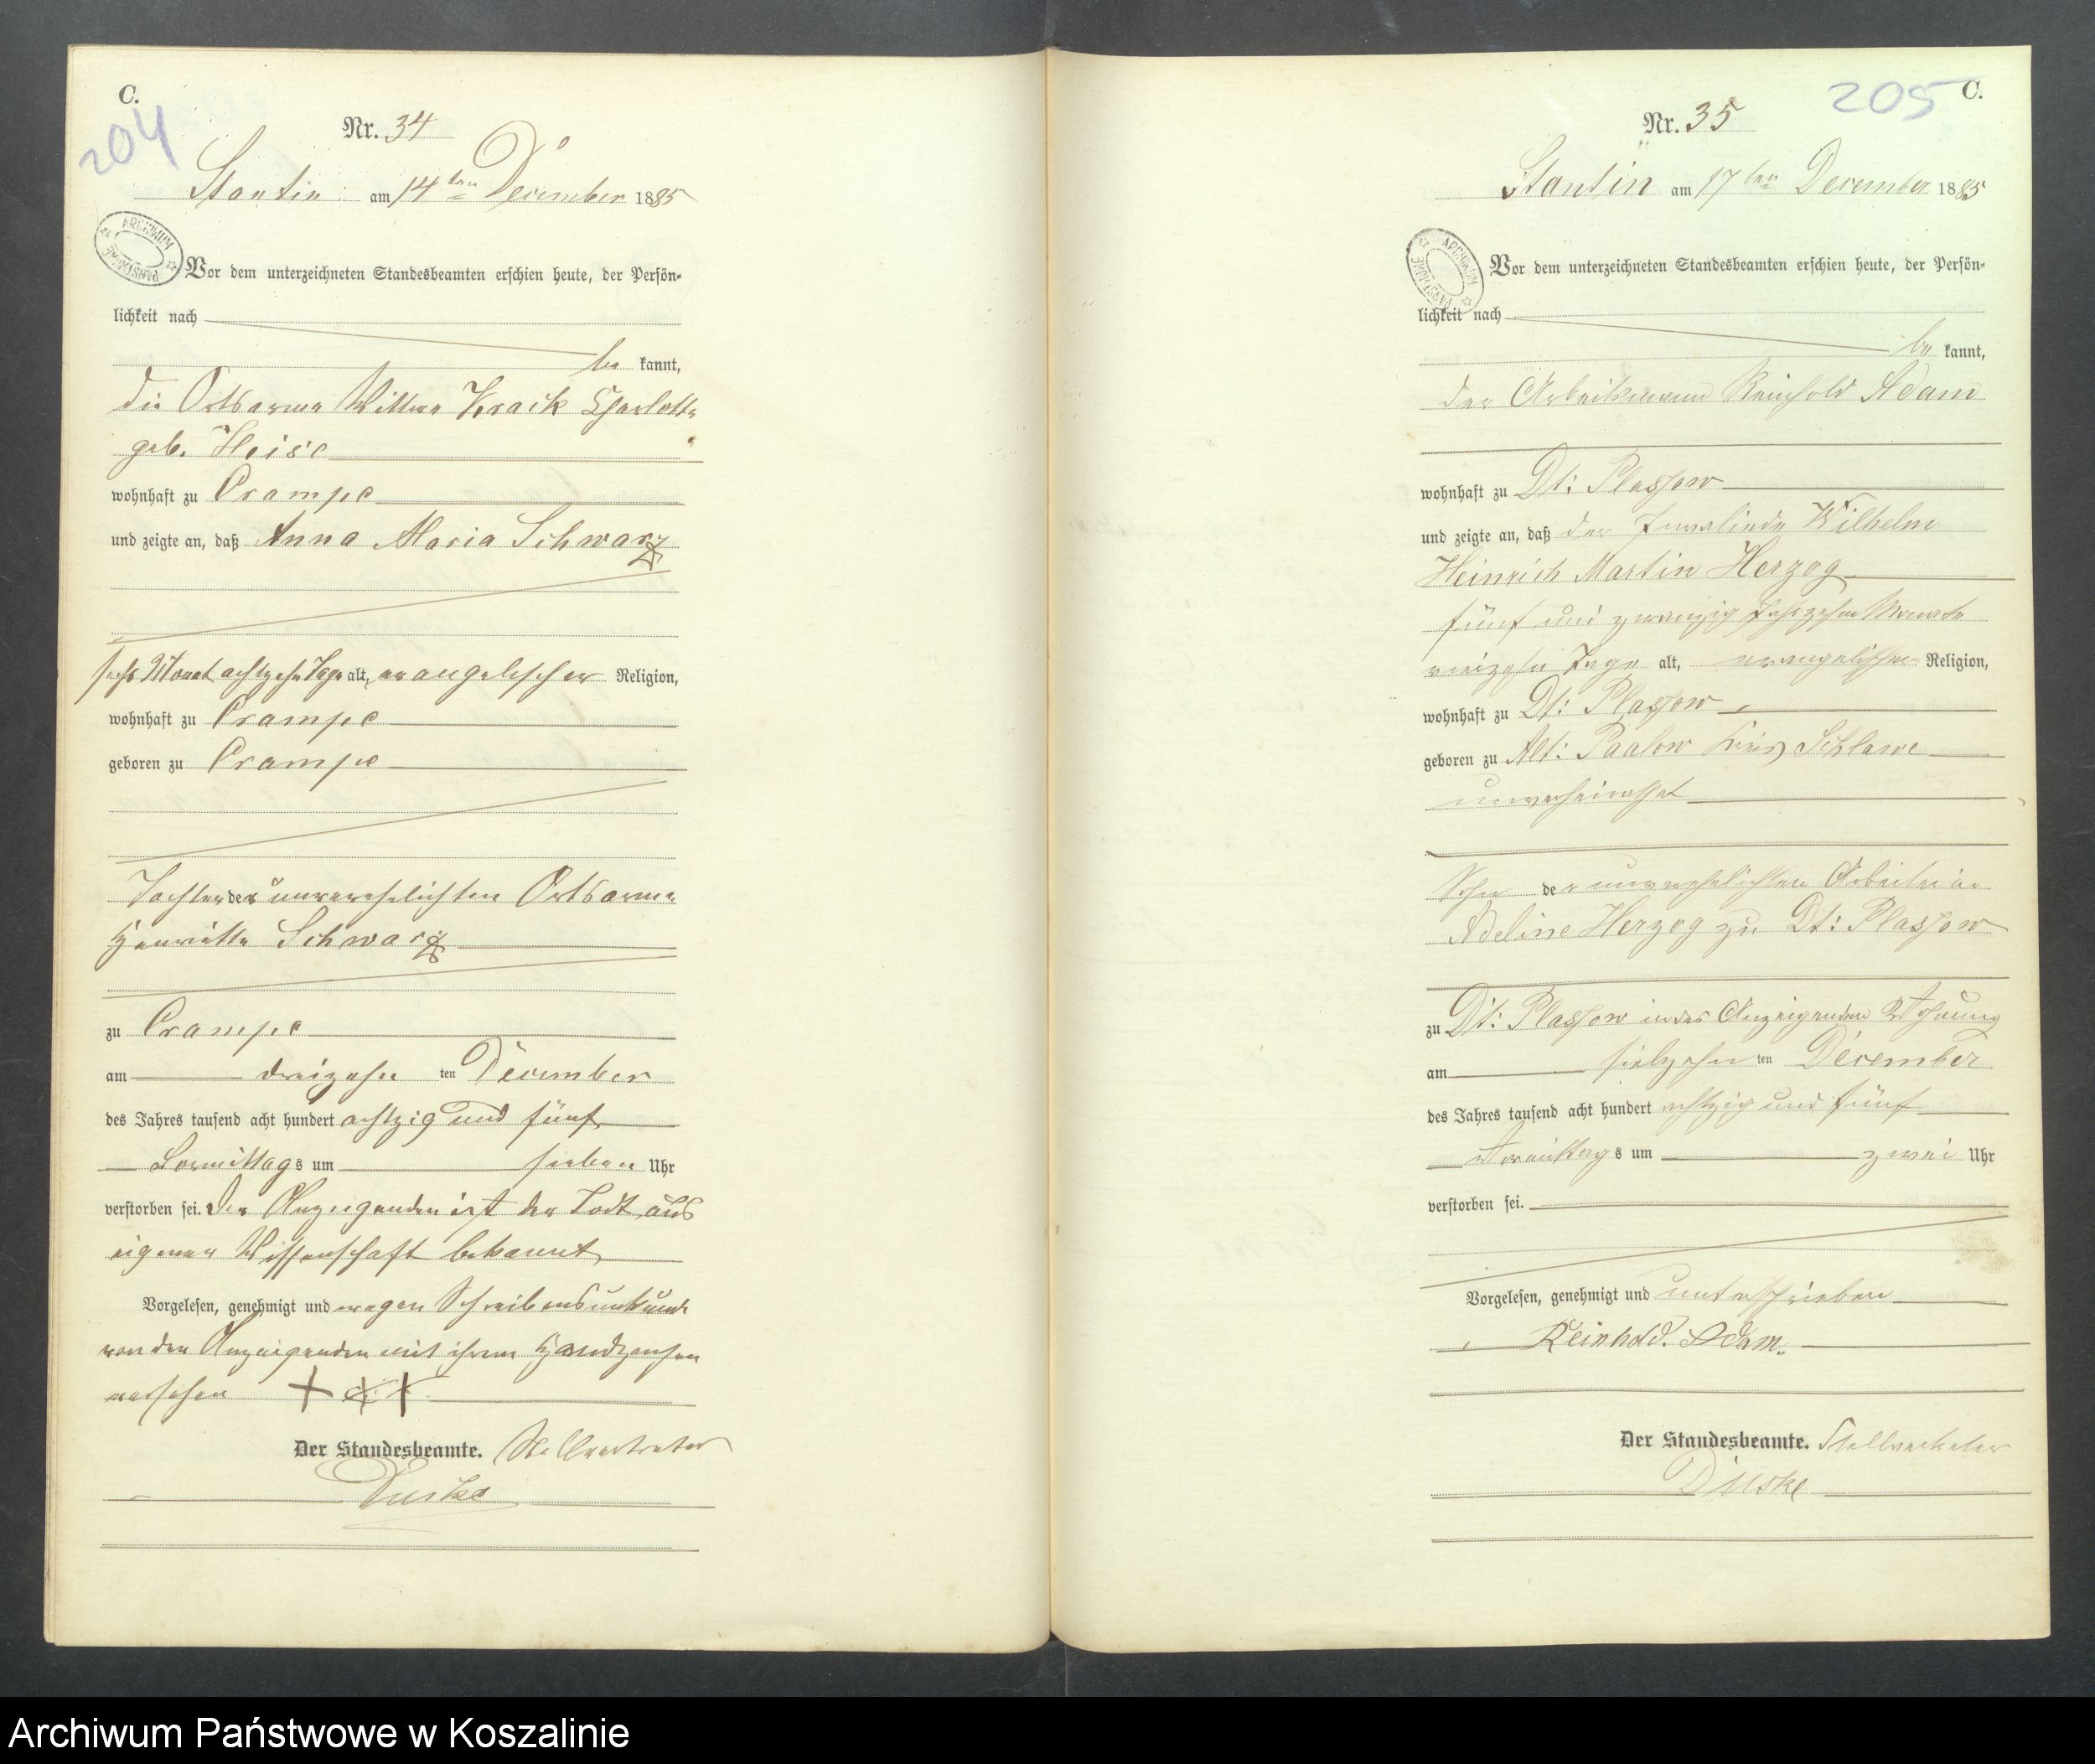 C.
204
Nr. 34
Stantin am 14ten December 1885
ARCHIWUM PAŃSTWOWE
Vor dem unterzeichneten Standesbeamten erschien heute, der Persön-
lichkeit nach
be kannt,
die Ortsarme Wittwe Krack Charlotte
geb. Heise
wohnhaft zu Crampe
und zeigte an, daß Anna Maria Schwarz
sechs Monat achtzehn Tage alt, evangelischer Religion,
wohnhaft zu Crampe
geboren zu Crampe
Tochter der unverehelichten Ortsarme
Henriette Schwarz
zu Crampe
am dreizehn ten December
des Jahres tausend acht hundert achtzig und fünf
Vormittags um sieben Uhr
verstorben sei. Der Anzeigenden ist der Todt aus
eigener Wissenschaft bekannt
Vorgelesen, genehmigt und wegen Schreibensunkunde
von der Anzeigenden mit ihrem Handzeichen
versehen + + +
Der Standesbeamte. Stellvertreter
205
C.
Nr. 35
Stantin am 17ten December 1885
ARCHIWUM PAŃSTWOWE
Vor dem unterzeichneten Standesbeamten erschien heute, der Persön-
lichkeit nach
be kannt,
der Arbeitsmann Reinhold Adam
wohnhaft zu Dt: Plassow
und zeigte an, daß der Invalide Wilhelm
Heinrich Martin Herzog
fünf und zwanzig Jahr Monate
Tage alt, evangelischer Religion,
wohnhaft zu Dt: Plassow
geboren zu Alt: Paalow Kreis Schlawe
unverheirathet
Sohn der unverehelichten Arbeiterin
Adeline Herzog zu Dt: Plassow
zu Dt: Plassow in des Anzeigenden Wohnung
am siebzehn ten December
des Jahres tausend acht hundert achtzig und fünf
Vormittags um zwei Uhr
verstorben sei.
Vorgelesen, genehmigt und unterschrieben
Reinhold. Adam.
Der Standesbeamte. Stellvertreter
Archiwum Państwowe w Koszalinie